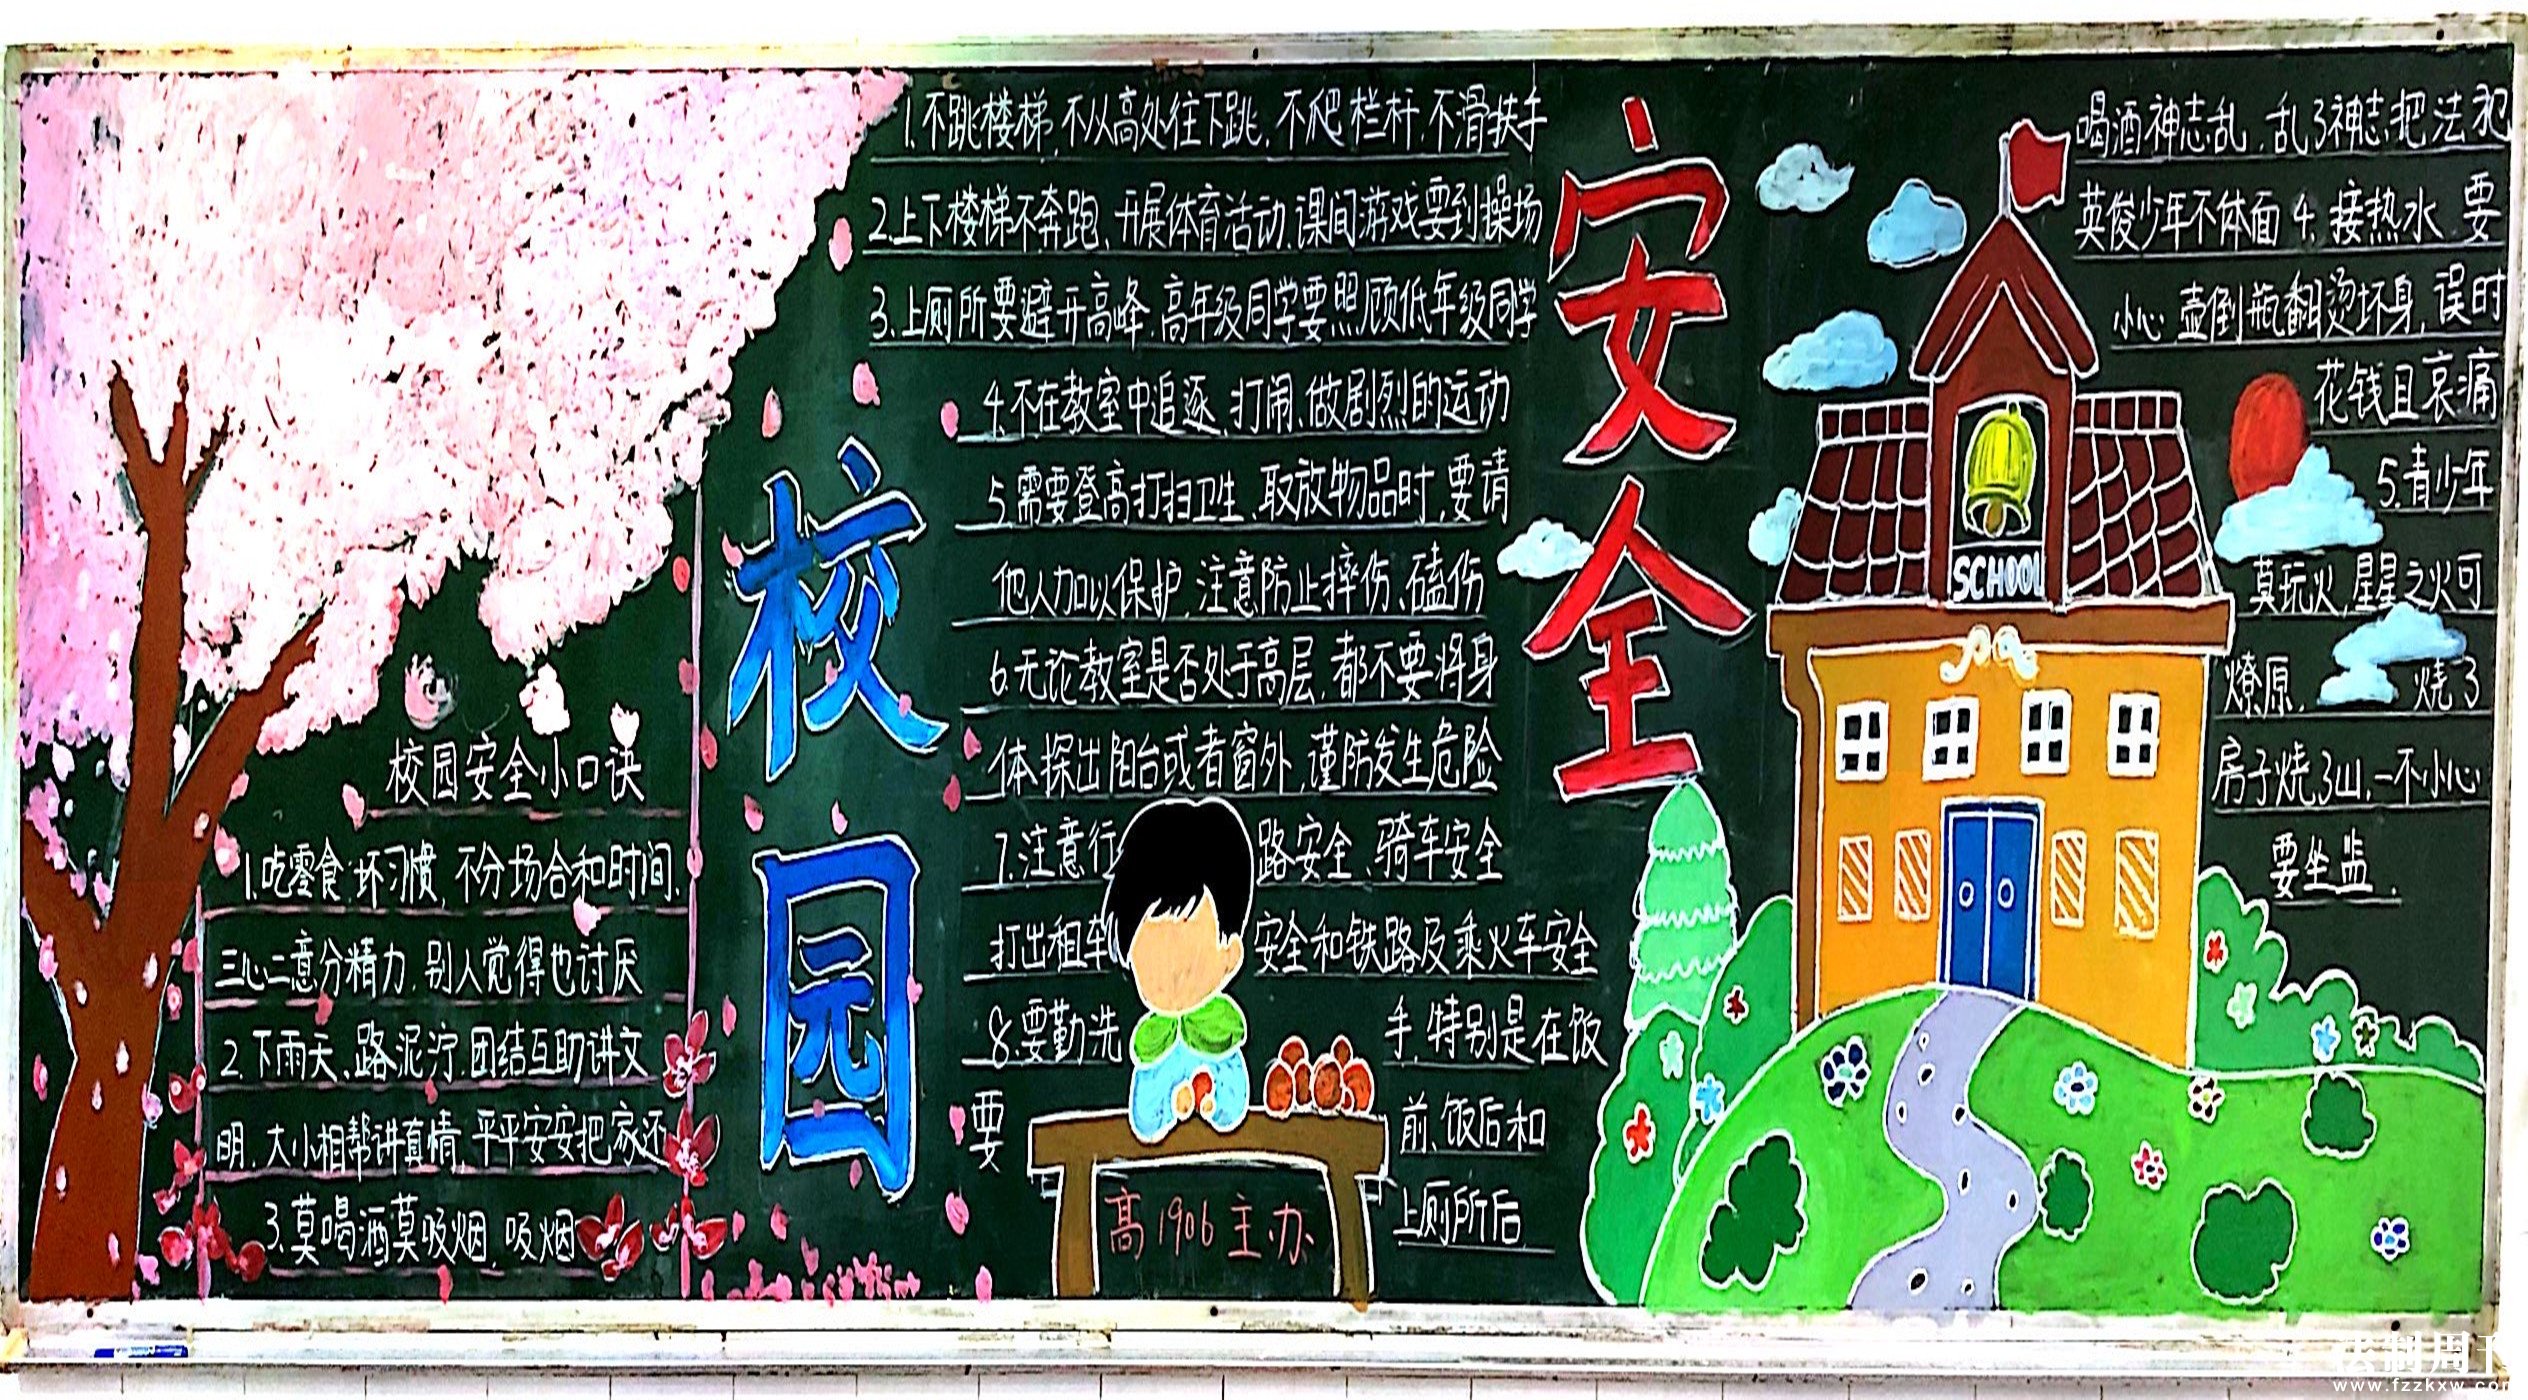 校园安全
校园安全小口诀
1.吃零食.坏习惯,不分场合和时间.
三心二意分精力.别人觉得也讨厌
2.下雨天、路泥泞.团结互助讲文
明.大小相帮讲真情,平平安安把家还
3.莫喝酒莫吸烟.吸烟
喝酒神志乱.乱了神志把法犯
英俊少年不体面 4.接热水 要
小心 壶倒瓶翻烫坏身,误时
花钱且哀痛
5.青少年
莫玩火,星星之火可
燎原. 烧了
房子烧了山,一不小心
要坐监.
1.不跳楼梯,不从高处往下跳.不爬栏杆.不滑扶手
2.上下楼梯不奔跑、开展体育活动.课间游戏要到操场
3.上厕所要避开高峰.高年级同学要照顾低年级同学
4.不在教室中追逐、打闹、做剧烈的运动
5.需要登高打扫卫生、取放物品时,要请
他人加以保护,注意防止摔伤、磕伤
6.无论教室是否处于高层,都不要将身
体探出阳台或者窗外,谨防发生危险
7.注意行路安全、骑车安全
打出租车安全和铁路及乘火车安全
8.要勤洗手,特别是在饭
前、饭后和
上厕所后
要
高1906主办
SCHOOL
法制周刊
www.fzzkxw.com